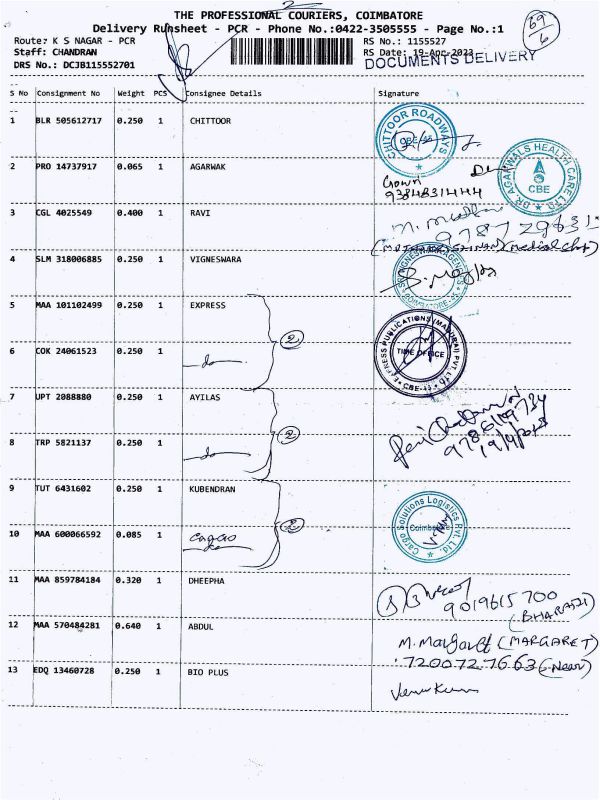 THE PROFESSIONAL COURIERS, COIMBATORE
Delivery Runsheet - PCR - Phone No.:0422-3505555 - Page No.:1
Route: K S NAGAR - PCR
RS No.: 1155527
Staff: CHANDRAN
RS Date: 19-Apr-2023
DRS No.: DCJB115552701
DOCUMENTS DELIVERY
S No Consignment No Weight PCS Consignee Details Signature
1 BLR 505612717 0.250 1 CHITTOOR
CHITTOOR ROADWAYS
2 PRO 14737917 0.065 1 AGARWAK
DR AGARWALS HEALTH CARE LTD
CBE
3 CGL 4025549 0.400 1 RAVI
4 SLM 318006885 0.250 1 VIGNESWARA
5 MAA 101102499 0.250 1 EXPRESS
2
TIME OFFICE
6 COK 24061523 0.250 1
do
7 UPT 2088880 0.250 1 AYILAS
2
8 TRP 5821137 0.250 1
do
9 TUT 6431602 0.250 1 KUBENDRAN
Cargo Solutions Logistics Pvt. Ltd.
Coimbatore
10 MAA 600066592 0.085 1 cargo
11 MAA 859784184 0.320 1 DHEEPHA
9019615700
12 MAA 570484281 0.640 1 ABDUL
(MARGARET)
7200727663 (Near)
13 EDQ 13460728 0.250 1 BIO PLUS